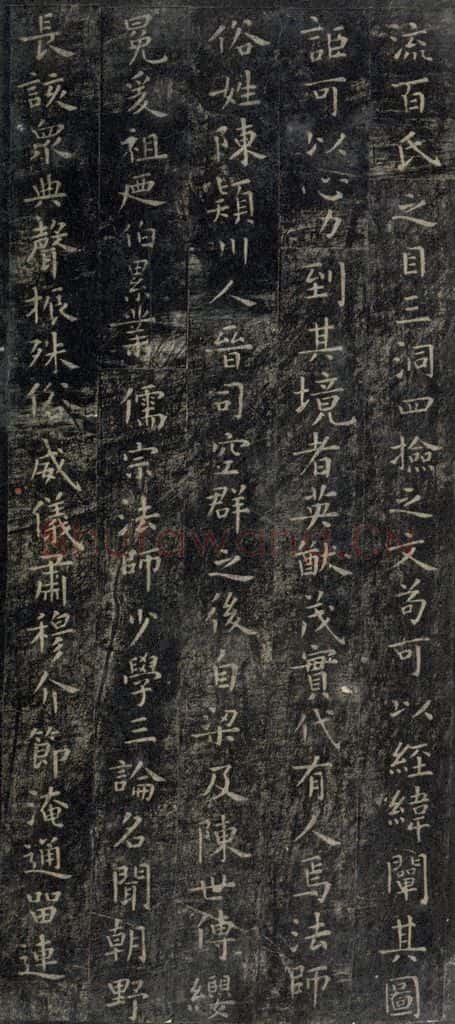 流百氏之目三洞四撿之文苟可以經緯闡其圖
詎可以心力到其境者英猷茂實代有人焉法師
俗姓陳潁川人晉司空群之後自梁及陳世傳纓
冕爰祖及伯累業儒宗法師少學三論名聞朝野
長該衆典聲振殊俗威儀肅穆介節淹通留連